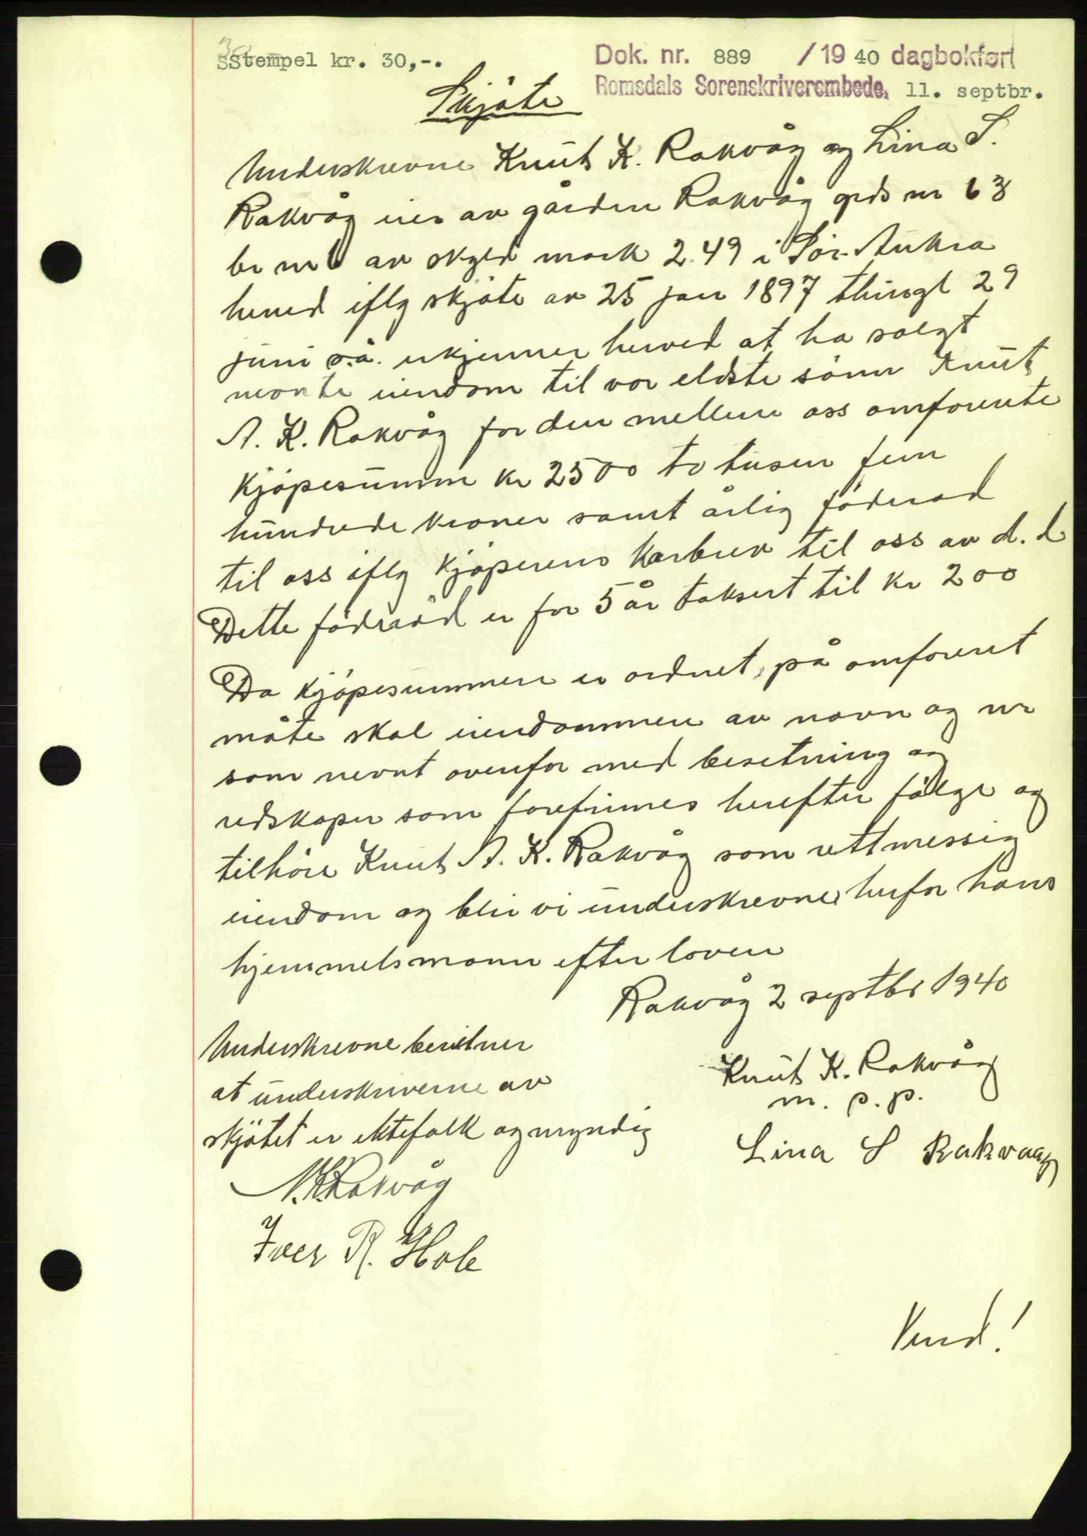 SStempel kr. 30,-.
Dok. nr. 889 / 19 40 dagbokført
Romsdals Sorenskriverembede, 11. septbr.
Skjøte
Underskrevne Knut K. Rakvåg og Lina S.
Rakvåg eier av gården Rakvåg grds nr 63
br nr 6 av skyld mark 2.49 i Sør-Aukra
herred iflg skjøte av 25 jan 1897 thingl 29
juni s.å. erkjenner herved at ha solgt
nevnte eiendom til vor eldste sønn Knut
A. K. Rakvåg for den mellem oss omforente
kjøpesumm kr 2500 to tusen fem
hundrede kroner samt årlig føderåd
til oss iflg kjøperens karbrev til oss av d. d
Dette føderåd er for 5 år taksert til kr 200
Da kjøpesummen er ordnet på omforent
måte skal eiendommen av navn og nr
som nevnt ovenfor med besetning og
redskaper som forefinnes herefter følge og
tilhøre Knut A. K. Rakvåg som rettmessig
eiendom og blir vi underskrevne herfor hans
hjemmelsmann efter loven
Rakvåg 2 septbr 1940
Underskrevne bevitner
at underskriverne av
skjøtet er ektefolk og myndig
Knut K. Rakvåg
m. p. p.
Lina S Rakvaag
N.K. Rakvåg
Iver R. Hole
Vend!